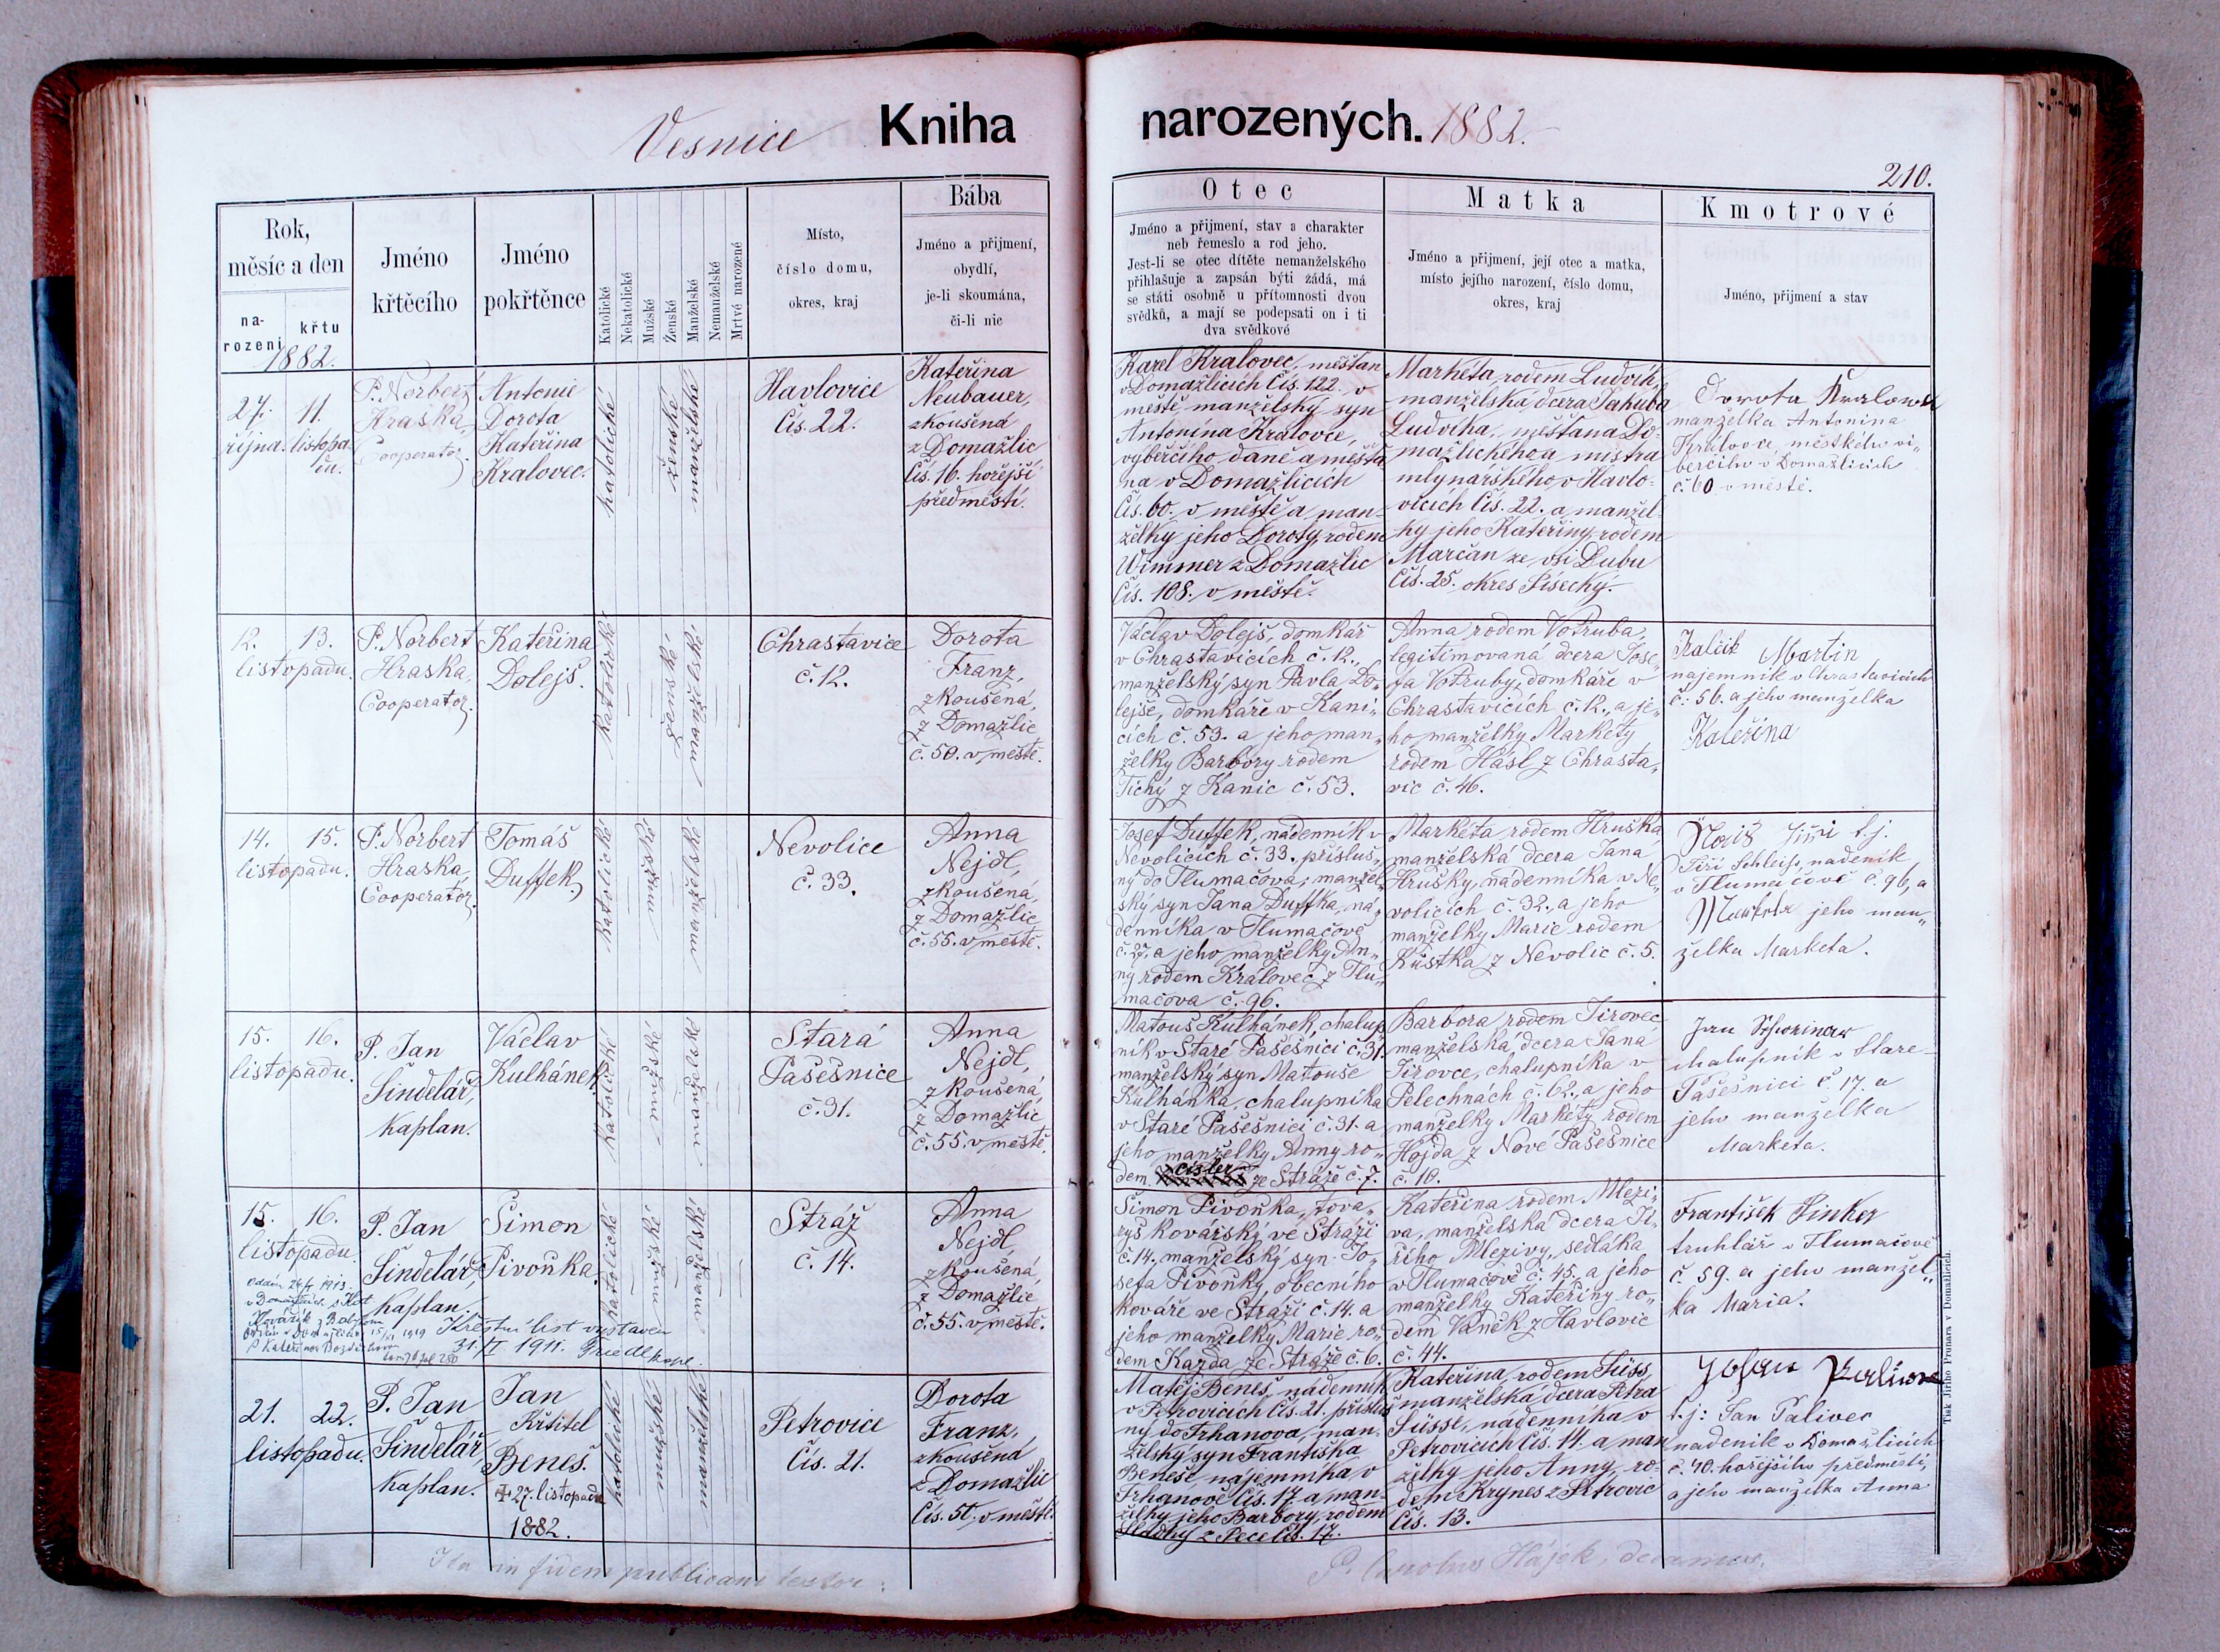 Vesnice Kniha narozených. 1882.
210.
Rok,
měsíc a den
na-
rození
křtu
1882.
Jméno
křtěcího
Jméno
pokřtěnce
Katolické
Nekatolické
Mužské
Ženské
Manželské
Nemanželské
Mrtvě narozené
Místo,
číslo domu,
okres, kraj
Bába
Jméno a přijmení,
obydlí,
je-li skoumána,
či-li nic
Otec
Jméno a přijmení, stav a charakter
neb řemeslo a rod jeho.
Jest-li se otec dítěte nemanželského
přihlašuje a zapsán býti žádá, má
se státi osobně u přítomnosti dvou
svědků, a mají se podepsati on i ti
dva svědkové
Matka
Jméno a přijmení, její otec a matka,
místo jejího narození, číslo domu,
okres, kraj
Kmotrové
Jméno, přijmení a stav
27. 11.
října. listopa-
du.
P. Norbert
Hraska,
Cooperator.
Antonie
Dorota
Kateřina
Kralovec.
katolické
ženské
manželské
Havlovice
Čís. 22.
Kateřina
Neubauer,
zkoušená
z Domažlic
Čís. 16. hořejší
předměstí.
Karel Kralovec, měšťan
v Domažlicích Čís. 122. v
městě manželský syn
Antonína Kralovce,
výběrčího daně a měšťa
na v Domažlicích
Čís. 60. v městě a man-
želky jeho Doroty, rodem
Wimmer z Domažlic
Čís. 108. v městě.
Markéta, rodem Ludvík,
manželská dcera Jakuba
Ludvíka, měšťana Do-
mažlického a mistra
mlynářského v Havlo-
vicích Čís. 22. a manžel-
ky jeho Kateřiny, rodem
Marčan ze vsi Dubu
Čís. 25. okres Písecký.
Dorota Kralowec
manželka Antonina
Králvce, městkého vi„
berčího v Domažlicích
č. 60 v městě.
12. 13.
listopadu.
P. Norbert
Hraska,
Cooperator.
Kateřina
Dolejš.
Katolické
ženské
manželské
Chrastavice
č. 12.
Dorota
Franz,
zkoušená,
z Domažlic
č. 50. v městě.
Václav Dolejš, domkář
v Chrastavicích č. 12.,
manželský syn Pavla Do„
lejše, domkáře v Kani„
cích č. 53. a jeho man„
želky Barbory rodem
Tichý z Kanic č. 53.
Anna rodem Votruba,
legitimovaná dcera Jose„
fa Votruby, domkáře v
Chrastavicích č. 12., a je„
ho manželky Markéty
rodem Hásl z Chrasta„
vic č. 46.
Kalčik Martin
najemnik v Chrastavicich
č. 56. a jeho manzelka
Kateřina
14. 15.
listopadu.
P. Norbert
Hraska,
Cooperator.
Tomáš
Duffek
Katolické
mužské
manželské
Nevolice
č. 33.
Anna
Nejdl,
zkoušená,
z Domažlic
č. 55. v městě.
Josef Duffek, nádenník v
Nevolicích č. 33. přísluš„
ný do Tlumačova; manžel„
ský syn Jana Duffka, ná„
denníka v Tlumačově
č. 27. a jeho manželky An„
ny rodem Královec z Tlu„
mačova č. 96.
Markéta rodem Hruška
manželská dcera Jana
Hrušky, nádenníka v Ne„
volicích č. 32., a jeho
manželky Marie rodem
Kustka z Nevolic č. 5.
Jiři t.j.
Jiří Schleiss, nadeník
v Tlumačově č. 96, a
jeho man„
želka Marketa.
15. 16.
listopadu.
P. Jan
Šindelář,
Kaplan.
Václav
Kulhánek
Katolické
mužské
manželské
Stará
Pašešnice
č. 31.
Anna
Nejdl,
zkoušená,
z Domažlic
č. 55. v městě.
Matouš Kulhánek, chalup
ník v Staré Pašešnici č. 31.
manželský syn Matouše
Kulhánka, chalupníka
v Staré Pašešnici č. 31. a
jeho manželky Anny ro„
dem Cisler ze Stráže č. 7.
Barbora rodem Jirovec,
manželská dcera Jana
Jirovce, chalupníka v
Pelechnách č. 62., a jeho
manželky Markéty rodem
Hojda z Nové Pašešnice
č. 10.
Jan
chalupnik v Stare-
Pašešnici č. 17. a
jeho manželka
Marketa.
15. 16.
listopadu.
P. Jan
Šindelář,
Kaplan.
Šimon
Pivoňka.
Katolické
mužské
manželské
Stráž
č. 14.
Anna
Nejdl,
zkoušená,
z Domažlic
č. 55. v městě.
Šimon Pivoňka, tova„
ryš kovářský ve Stráži
č. 14. manželský syn Jo„
sefa Pivoňky, obecního
kováře ve Stráži č. 14. a
jeho manželky Marie ro„
dem Kazda ze Stráže č. 6.
Kateřina rodem Mlezi„
va, manželská dcera Ji„
řího Mlezivy, sedláka
v Tlumačově č. 45. a jeho
manželky Kateřiny ro„
dem Vaněk z Havlovic
č. 44.
František Pinker
truhlář v Tlumačově
č. 59. a jeho manžel„
ka Maria.
Křestní list vystaven
1911.
21. 22.
listopadu.
P. Jan
Šindelář,
Kaplan.
Jan
Křtitel
Beneš.
+ 27. listopadu
1882.
katolické
mužské
manželské
Petrovice
Čís. 21.
Dorota
Franz,
zkoušená
z Domažlic
Čís. 50. v městě.
Matěj Beneš, nádenník
v Petrovicích Čís. 21. přísluš
ný do Trhanova, man-
želský syn Františka
Beneše, nájemníka v
Trhanově Čís. 17. a man-
želky jeho Barbory, rodem
z Pece Čís. 17.
Kateřina, rodem Süss,
manželská dcera Petra
Süsse, nádenníka v
Petrovicích Čís. 14. a man
želky jeho Anny, ro-
dem Krynes z Petrovic
Čís. 13.
t.j: Jan Palivec
nadenik v Domažlicich
č. 40. hořejšího předmestí,
a jeho manželka Anna
Ita in fidem publicam testor:
P. Carolus Hájek, decanus.
Tisk Jiřího Prunara v Domažlicích.